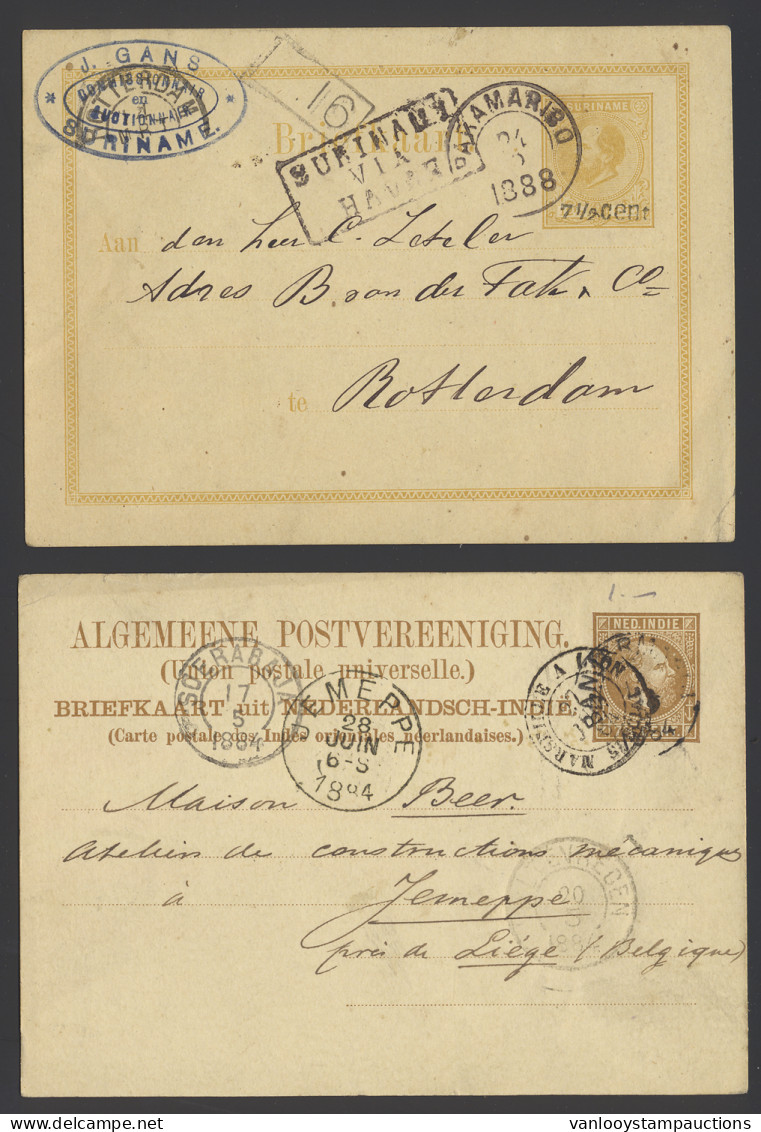 J. GANS
COMMISSIONAIR
en
SURINAME.
16
SURINAME
VIA
HAVRE
PARAMARIBO
24
1888
SURINAME
7½ cent
Briefkaart
Aan den heer C.
Adres B. van der Tak & Co
te Rotterdam
1.—
NED. INDIE
ALGEMEENE POSTVEREENIGING.
(Union postale universelle.)
BRIEFKAART uit NEDERLANDSCH-INDIE
(Carte postale des Indes orientales néerlandaises.)
SOERABAIJA
17
5
1884
JEMEPPE
28
JUIN
6-S
1884
MARSEILLE A LYON
Maison Beer.
Ateliers de constructions mécaniques
à Jemeppe
près de Liége (Belgique)
20
1884
DELCAMPE
vanlooystampauctions